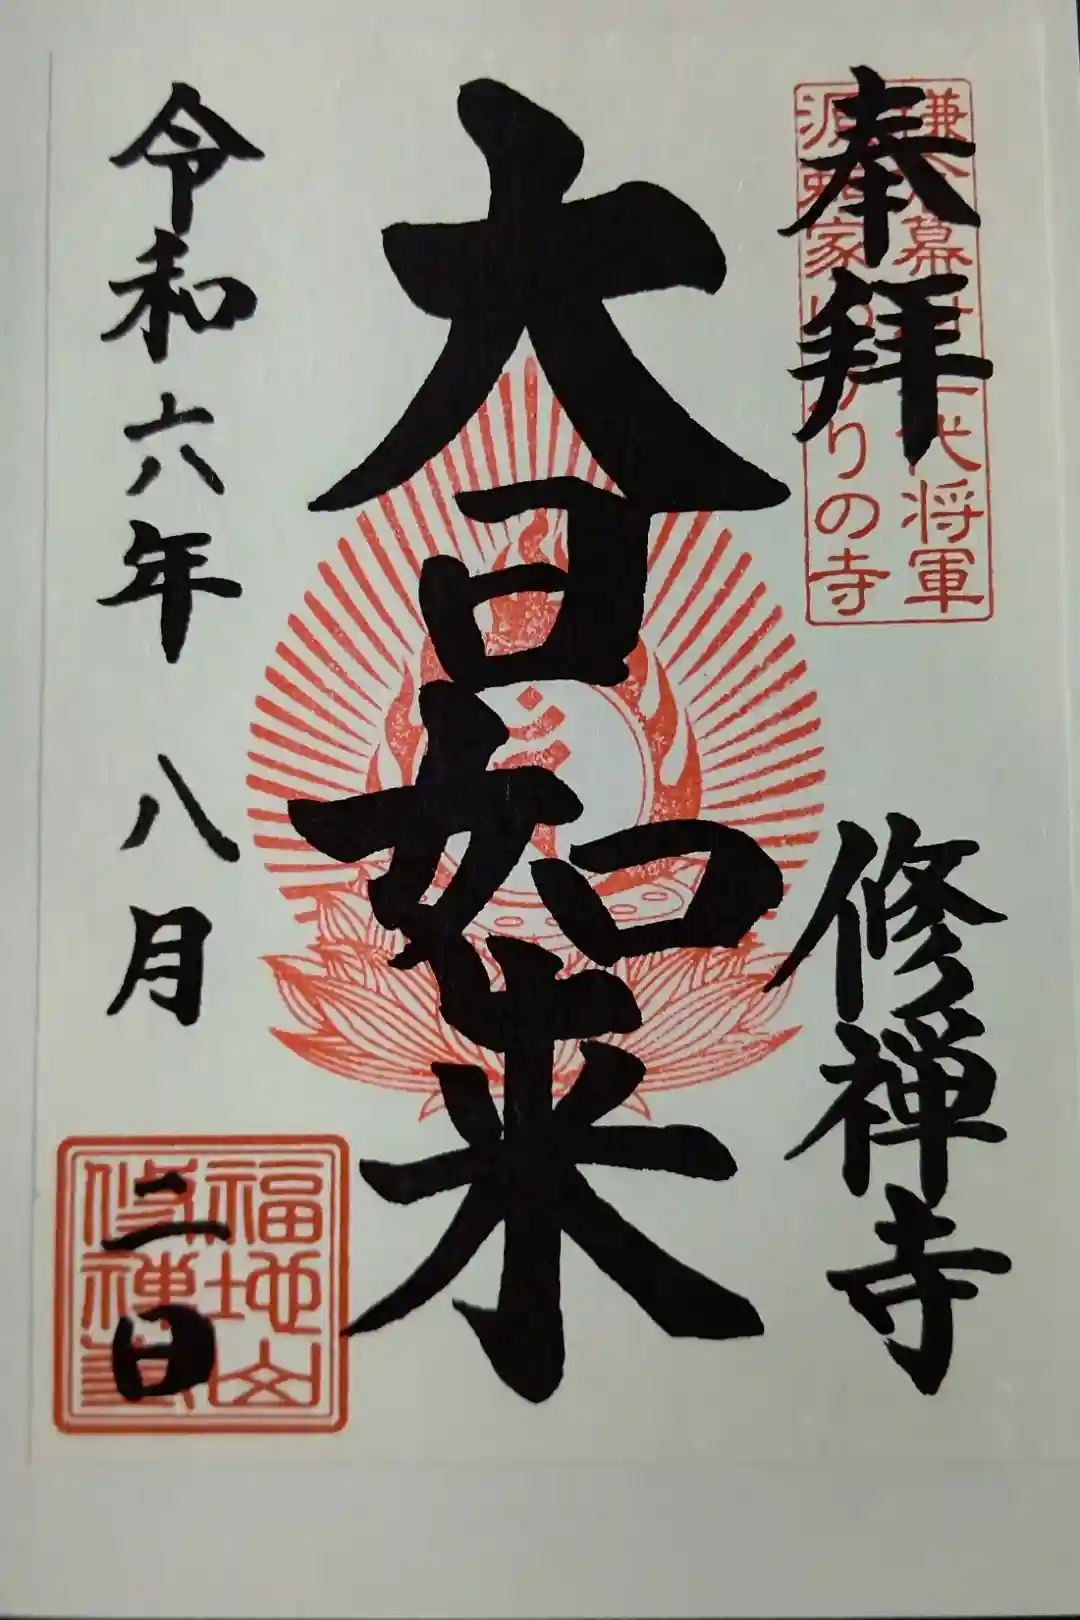 奉拝
鎌倉幕府二代将軍
源頼家ゆかりの寺
修禅寺
大日如来
令和六年八月二日
福地山
修禅寺